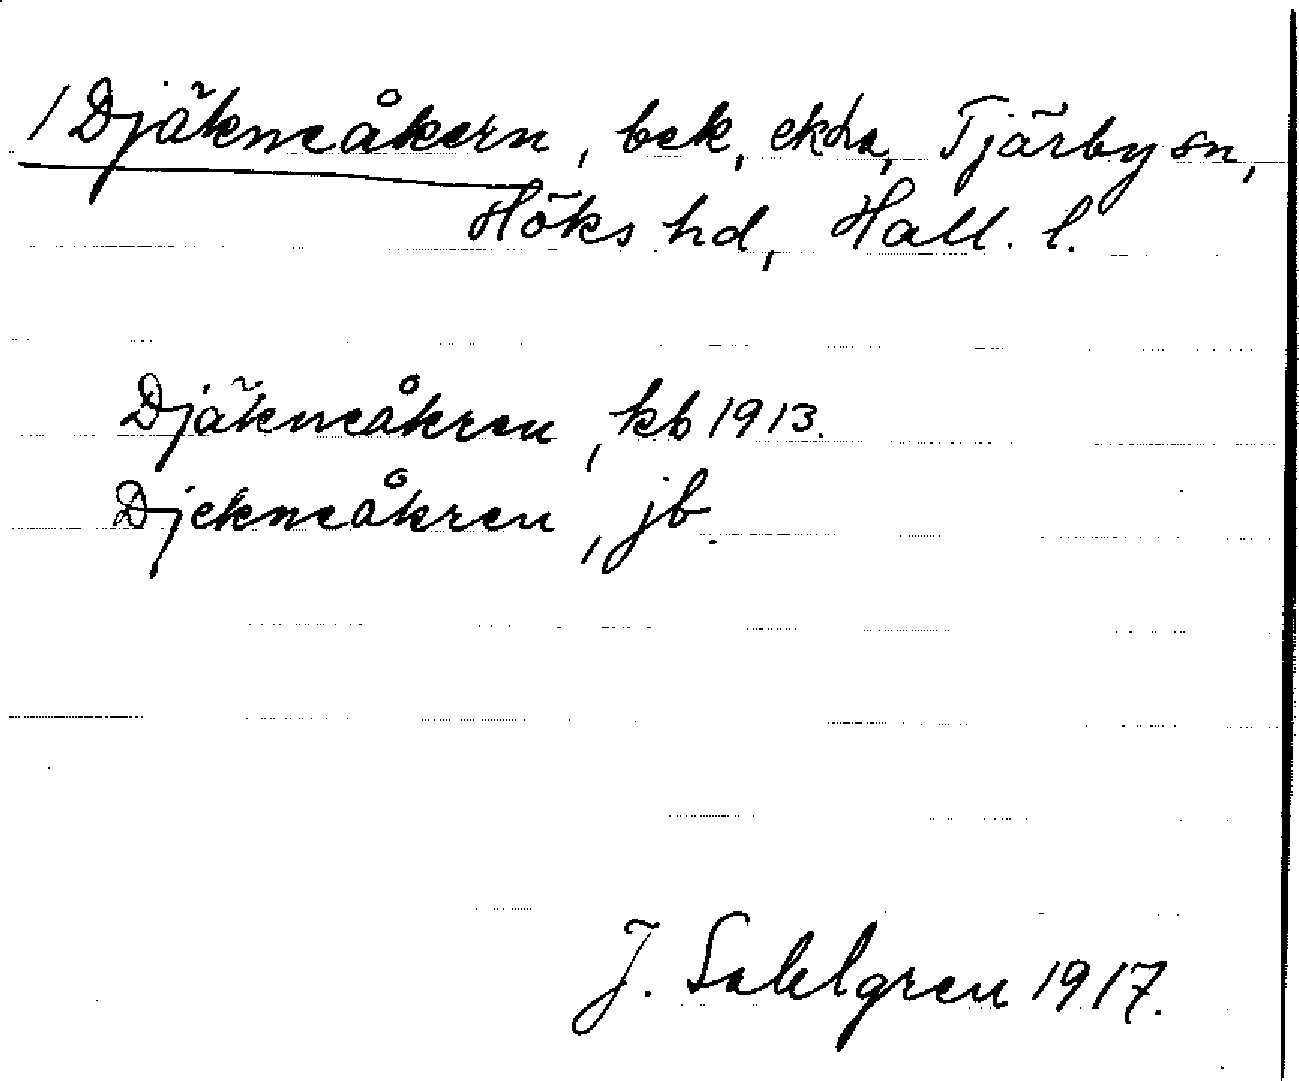 / Djäkneåkern, bek, ekda, Tjärby sn,
Höks hd, Hall. l.
Djäkneåkren, kb 1913.
Djekneåkren, jb.
J. Sahlgren 1917.